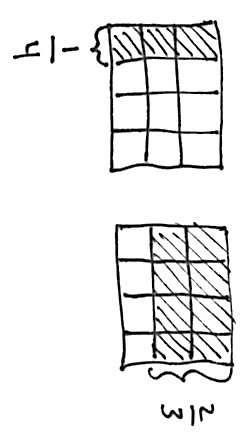 1/4
2/3